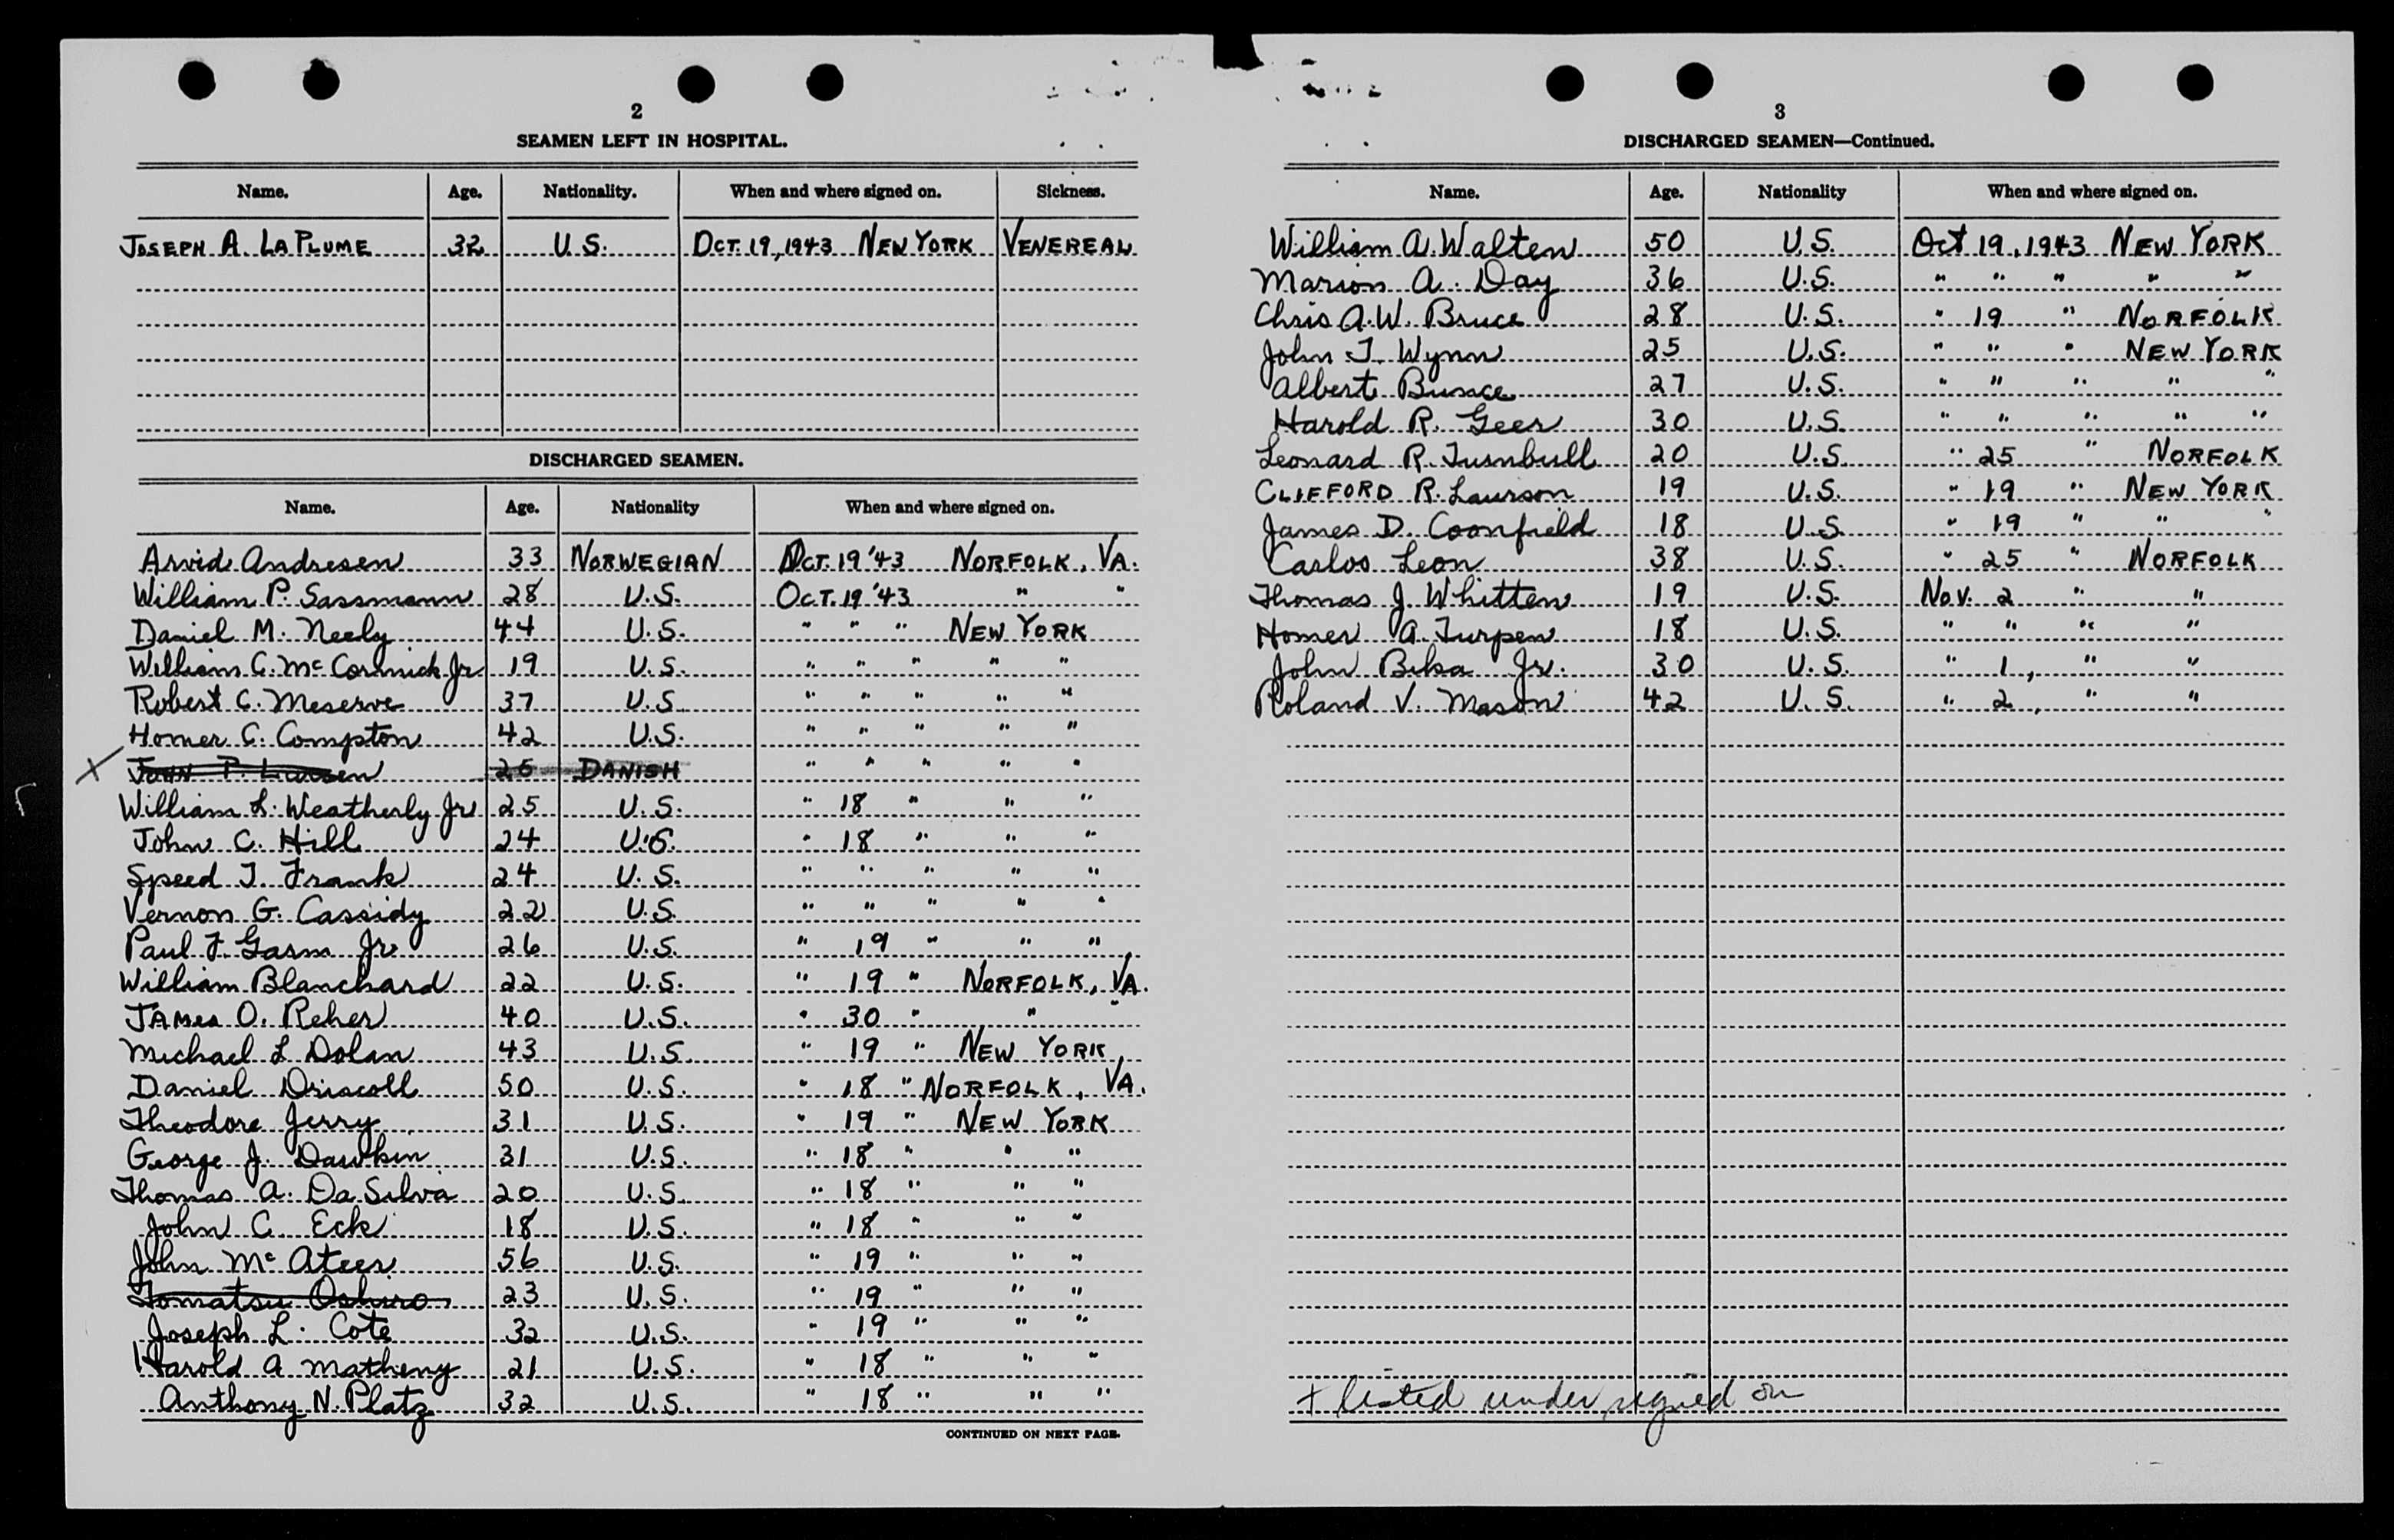 2
SEAMEN LEFT IN HOSPITAL.
Name. Age. Nationality. When and where signed on. Sickness.
JOSEPH A. LAPLUME 32 U.S. OCT. 19, 1943 NEW YORK VENEREAL
DISCHARGED SEAMEN.
Name. Age. Nationality When and where signed on.
Arvid Andresen 33 NORWEGIAN OCT. 19 '43 NORFOLK, VA.
William P. Sassmann 28 U.S. OCT. 19 '43 " "
Daniel M. Neely 44 U.S. " " " NEW YORK
William C. McCormick Jr 19 U.S. " " " " "
Robert C. Meserve 37 U.S. " " " " "
Homer C. Compton 42 U.S. " " " " "
X JOHN P. Larsen 26 DANISH " " " " "
William L. Weatherly Jr 25 U.S. " 18 " " "
John C. Hill 24 U.S. " 18 " " "
Speed T. Frank 24 U.S. " " " " "
Vernon G. Cassidy 22 U.S. " " " " "
Paul F. Garm Jr 26 U.S. " 19 " " "
William Blanchard 22 U.S. " 19 " NORFOLK, VA.
JAMES O. Reher 40 U.S. " 30 " " "
Michael L Dolan 43 U.S. " 19 " NEW YORK
Daniel Driscoll 50 U.S. " 18 " NORFOLK, VA.
Theodore Jerry 31 U.S. " 19 " NEW YORK
George J. Dawkin 31 U.S. " 18 " " "
Thomas A. Da Silva 20 U.S. " 18 " " "
John C. Eck 18 U.S. " 18 " " "
John McAteer 56 U.S. " 19 " " "
Tomatsu Oshiro 23 U.S. " 19 " " "
Joseph L. Cote 32 U.S. " 19 " " "
Harold A Matheny 21 U.S. " 18 " " "
Anthony N. Platz 32 U.S. " 18 " " "
CONTINUED ON NEXT PAGE.
3
DISCHARGED SEAMEN—Continued.
Name. Age. Nationality When and where signed on.
William A. Walten 50 U.S. Oct 19, 1943 NEW YORK
Marion A. Day 36 U.S. " " " " "
Chris A.W. Bruce 28 U.S. " 19 " NORFOLK
John T. Wynn 25 U.S. " " " NEW YORK
Albert Bunce 27 U.S. " " " " "
Harold R. Geer 30 U.S. " " " " "
Leonard R. Turnbull 20 U.S. " 25 " NORFOLK
CLIFFORD R. Laurson 19 U.S. " 19 " NEW YORK
James D. Coonfield 18 U.S. " 19 " " "
Carlos Leon 38 U.S. " 25 " NORFOLK
Thomas J. Whitten 19 U.S. Nov. 2 " "
Homer A. Turpen 18 U.S. " " " "
John Bika Jr. 30 U.S. " 1, " "
Roland V. Mason 42 U.S. " 2, " "
+ listed under signed on